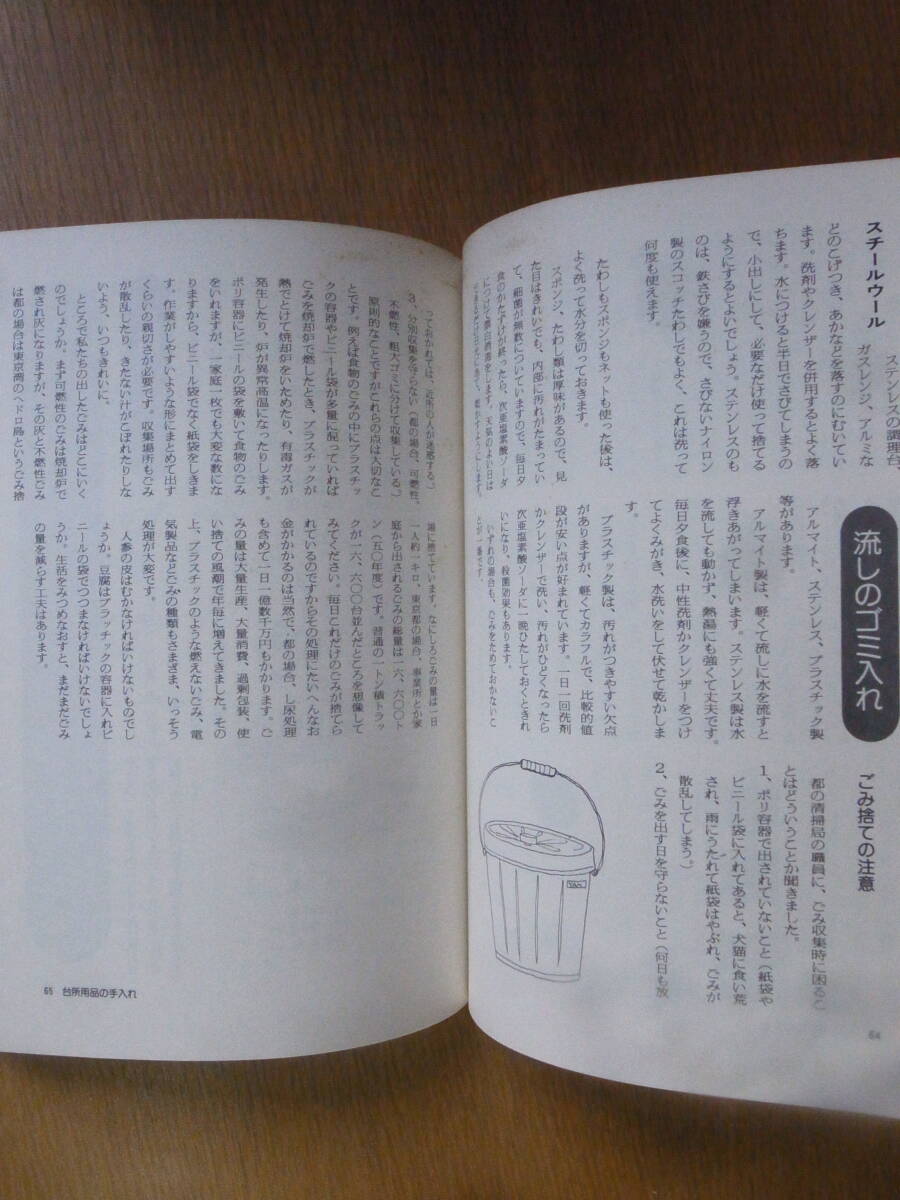 ステンレスの調理台、
スチールウール　ガスレンジ、アルミな
どのこげつき、あかなどを落すのにむいてい
ます。洗剤やクレンザーを併用するとよく落
ちます。水につけると半日でさびてしまうの
で、小出しにして、必要なだけ使って捨てる
ようにするとよいでしょう。ステンレスのも
のは、鉄さびを嫌うので、さびないナイロン
製のスコッチたわしでもよく、これは洗って
何度も使えます。
たわしもスポンジもネットも使った後は、
よく洗って水分を切っておきます。
スポンジ、たわし類は厚味があるので、見
た目はきれいでも、内部に汚れがたまってい
て、細菌が無数についていますので、毎日夕
食のかたずけが終ったら、次亜塩素酸ソーダ
につけて漂白消毒をします。天気のよい日は
流しのゴミ入れ
アルマイト、ステンレス、プラスチック製
等があります。
アルマイト製は、軽くて流しに水を流すと
浮きあがってしまいます。ステンレス製は水
を流しても動かず、熱湯にも強くて丈夫です。
毎日夕食後に、中性洗剤かクレンザーをつけ
てよくみがき、水洗いをして伏せて乾かしま
す。
プラスチック製は、汚れがつきやすい欠点
がありますが、軽くてカラフルで、比較的値
段が安い点が好まれています。一日一回洗剤
かクレンザーで洗い、汚れがひどくなったら
次亜塩素酸ソーダに一晩ひたしておくときれ
いになり、殺菌効果もあります。
いずれの場合も、ごみをためておかないこ
とが一番です。
ごみ捨ての注意
都の清掃局の職員に、ごみ収集時に困るこ
とはどういうことか聞きました。
1、ポリ容器で出されていないこと（紙袋や
ビニール袋に入れてあると、犬猫に食い荒
され、雨にうたれて紙袋はやぶれ、ごみが
散乱してしまう。）
2、ごみを出す日を守らないこと（何日も放
64
っておかれては、近所の人が迷惑する。）
3、分別収集を守らない（都の場合、可燃性、
不燃性、粗大ゴミに分けて収集している。）
原則的なことですがこれらの点は大切なこ
とです。例えば食物のごみの中にプラスチッ
クの容器やビニール袋が多量に混っていれば
ごみを焼却炉で燃したとき、プラスチックが
熱でとけて焼却炉をいためたり、有毒ガスが
発生したり、炉が異常高温になったりします。
ポリ容器にビニールの袋を敷いて食物のごみ
をいれますが、一家庭一枚でも大変な数にな
りますから、ビニール袋でなく紙袋をしきま
す。作業がしやすいような形にまとめて出す
くらいの親切さが必要です。収集場所もごみ
が散乱したり、きたない汁がこぼれたりしな
いよう、いつもきれいに。
ところで私たちの出したごみはどこにいく
のでしょうか。まず可燃性のごみは焼却炉で
燃され灰になりますが、その灰と不燃性ごみ
は都の場合は東京湾のヘドロ島というごみ捨
場に捨てています。なにしろごみの量は一日
一人約一キロ、東京都の場合、事業所とか家
庭から出されるごみの総量は一六、六〇〇ト
ン（五〇年度）です。普通の一トン積トラッ
クが一六、六〇〇台並んだところを想像して
みてください。毎日これだけのごみが捨てら
れているのですからその処理にたいへんなお
金がかかるのは当然で、都の場合、し尿処理
も含めて一日一億数千万円もかかります。ご
みの量は大量生産、大量消費、過剰包装、使
い捨ての風潮で年毎に増えてきました。その
上、プラスチックのような燃えないごみ、電
気製品などごみの種類もさまざま、いっそう
処理が大変です。
人参の皮はむかなければいけないものでし
ょうか。豆腐はプラッチックの容器に入れビ
ニールの袋でつつまなければいけないでしょ
うか。生活をみつめなおすと、まだまだごみ
の量を減らす工夫はあります。
65　台所用品の手入れ